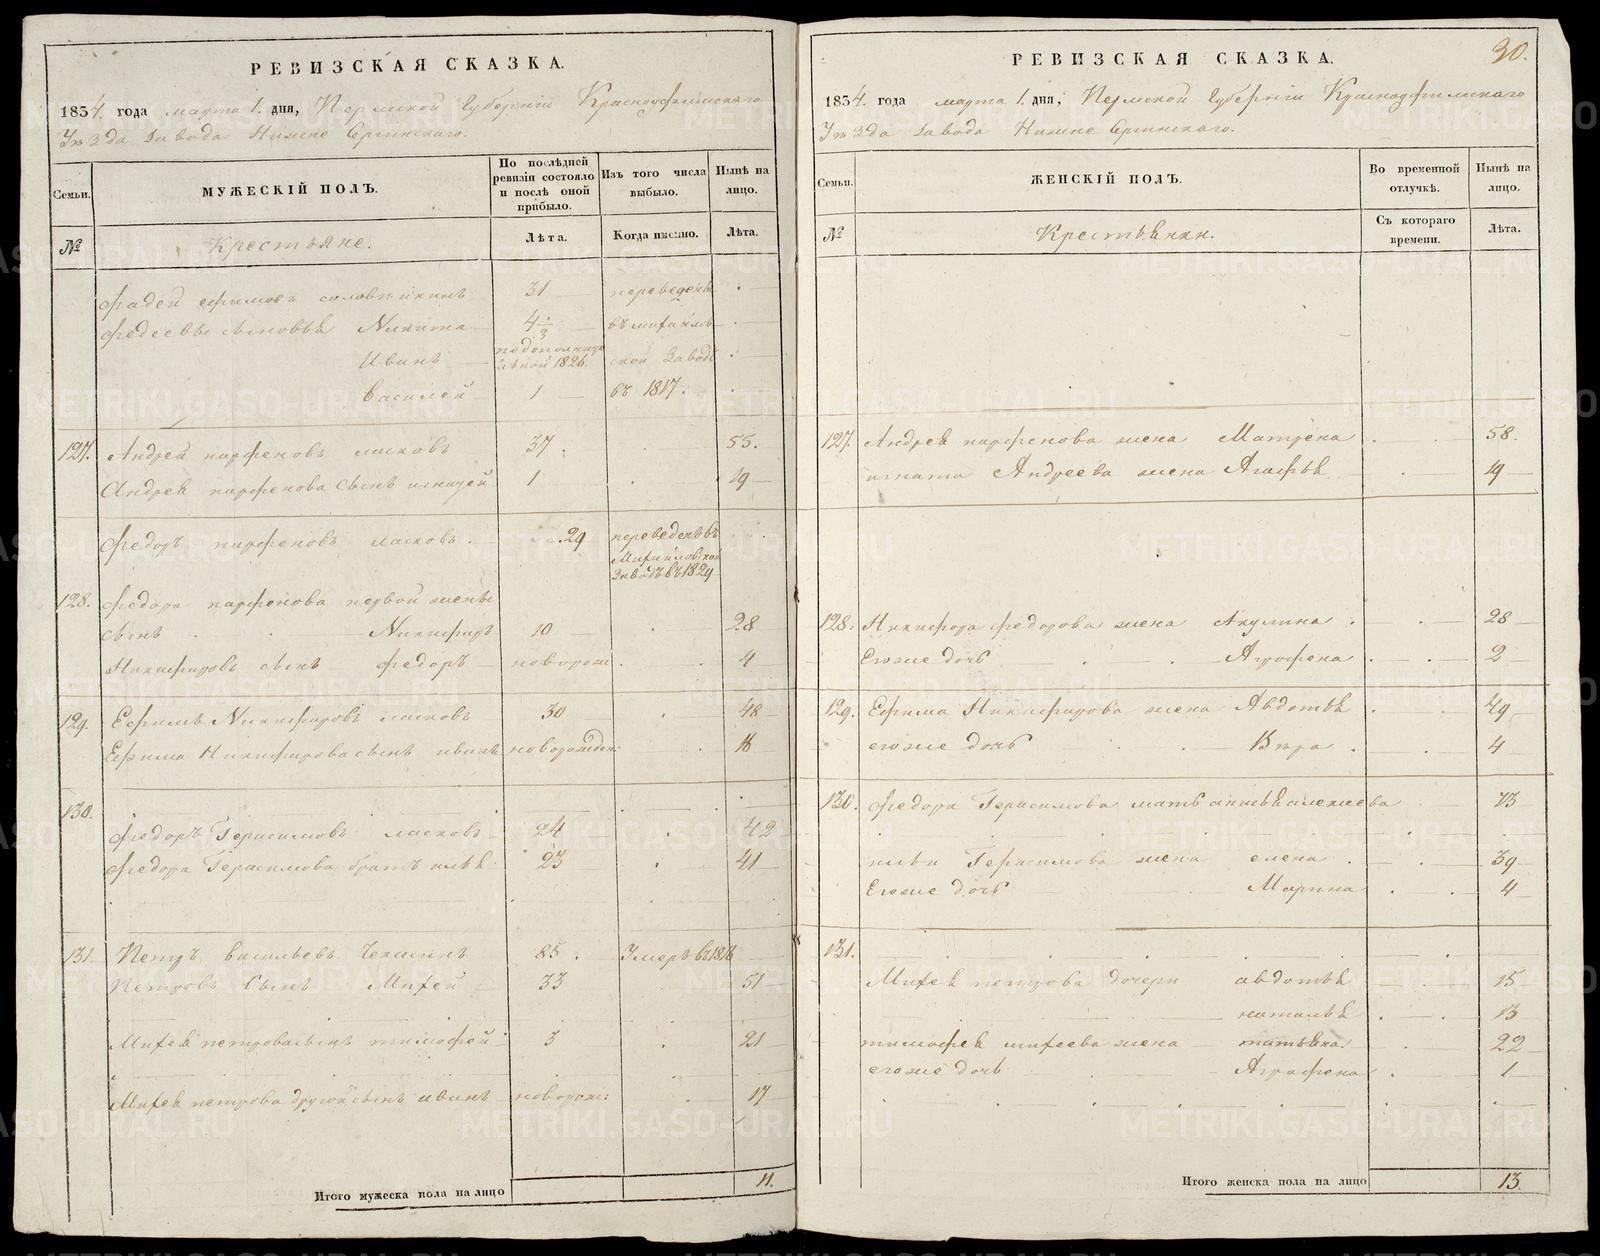 РЕВИЗСКАЯ СКАЗКА.
1834. года марта 1. дня, Пермской Губерніи Красноуфимскаго
Уѣзда Завода Нижне Сергинскаго.
Семьи.
МУЖЕСКІЙ ПОЛЪ.
По послѣдней ревизіи состояло и послѣ оной прибыло.
Изъ того числа выбыло.
Нынѣ на лицо.
№
Крестьяне.
Лѣта.
Когда именно.
Лѣта.
Фадей Ефимовъ 31 переведены
Фадеевы сыновья Никита 4 въ михайлов
Иванъ 1826. ской Заводъ
Василей 1 въ 1817.
127. Андрей парфеновъ ласковъ 37. 55.
Андрея парфенова сынъ игнатей 1 19
Федоръ парфеновъ ласковъ. 29 переведенъ въ
Михайловской
Заводъ въ 1829
128. Федора парфенова первой жены
сынъ Никифоръ 10 28
Никифоровъ сынъ Федоръ новорож 4
129. Ефимъ Никифоровъ ласковъ 30 48
Ефима Никифорова сынъ иванъ новорожден: 16
130.
Федоръ Герасимовъ ласковъ 24 42
Федора Герасимова братъ илья 23 41
131. Петръ васильевъ Чекасинъ 85. Умеръ въ 1816
Петровъ Сынъ Михей 33 51
Михея петрова сынъ тимофей 3 21
Михея петрова другой сынъ иванъ новорож: 17
Итого мужеска пола на лицо 11.
30.
РЕВИЗСКАЯ СКАЗКА.
1834. года марта 1. дня, Пермской Губерніи Красноуфимскаго
Уѣзда Завода Нижне Сергинскаго.
Семьи.
ЖЕНСКІЙ ПОЛЪ.
Во временной отлучкѣ.
Нынѣ на лицо.
№
Крестьянки.
Съ котораго времени.
Лѣта.
127. Андрея парфенова жена Матрена 58.
игнатья Андреева жена Агафья 19
128. Никифора федорова жена Акулина 28
Егоже дочь Агрофена 2
129. Ефима Никифорова жена Авдотья 49
егоже дочь Вѣра 4
130. Федора Герасимова мать алексеева 73
ильи Герасимова жена елена 39
Егоже дочь Марина 4
131.
Михея петрова дочери авдотья 15
наталья 13
тимофея михеева жена татьяна. 22
егоже дочь Аграфена 1
Итого женска пола на лицо 13.
METRIKI.GASO-URAL.RU